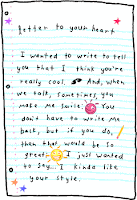 Letter to your heart
I wanted to write to tell
you that I think you're
really cool. And, when
we talk, sometimes you
make me smile. You
don't have to write me
back, but if you do,
then that would be so
great! I just wanted
to say... I kinda like
your style.